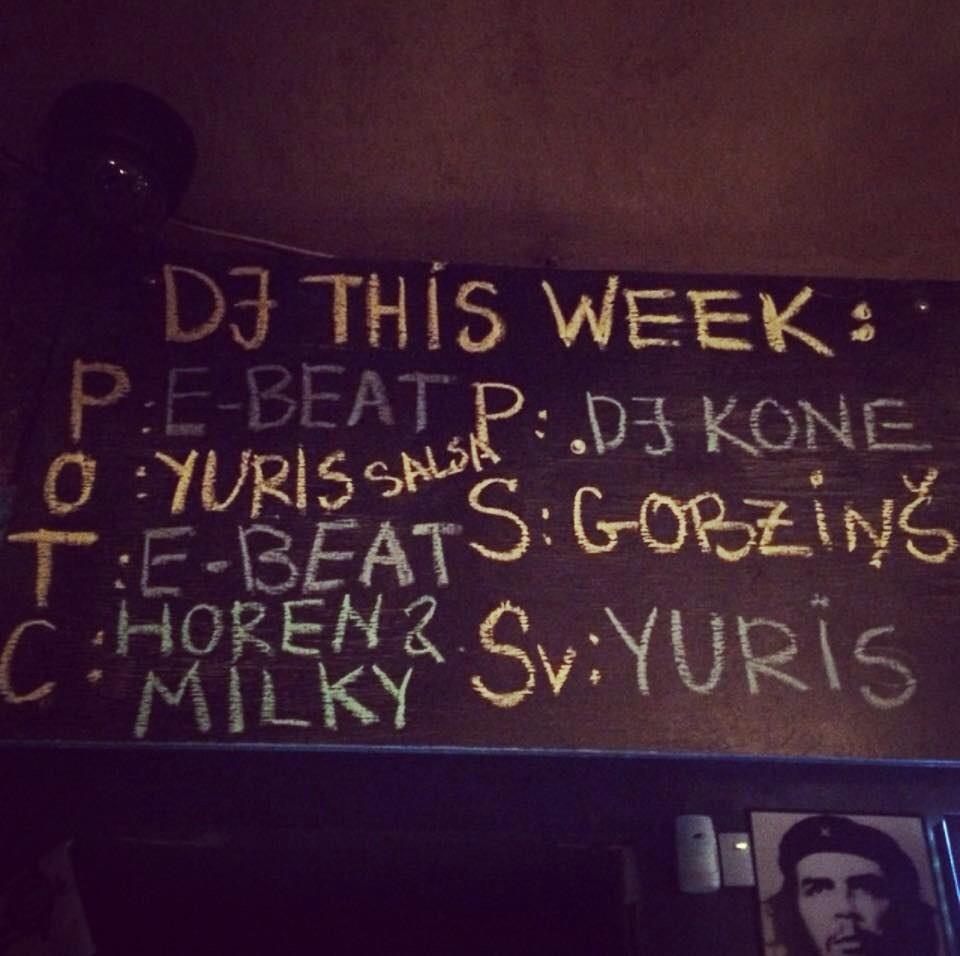 DJ THIS WEEK:
P: E-BEAT
O: YURIS SALSA
T: E-BEAT
C: HOREN &
MILKY
P: DJ KONE
S: GOBZIŅŠ
Sv: YURIS